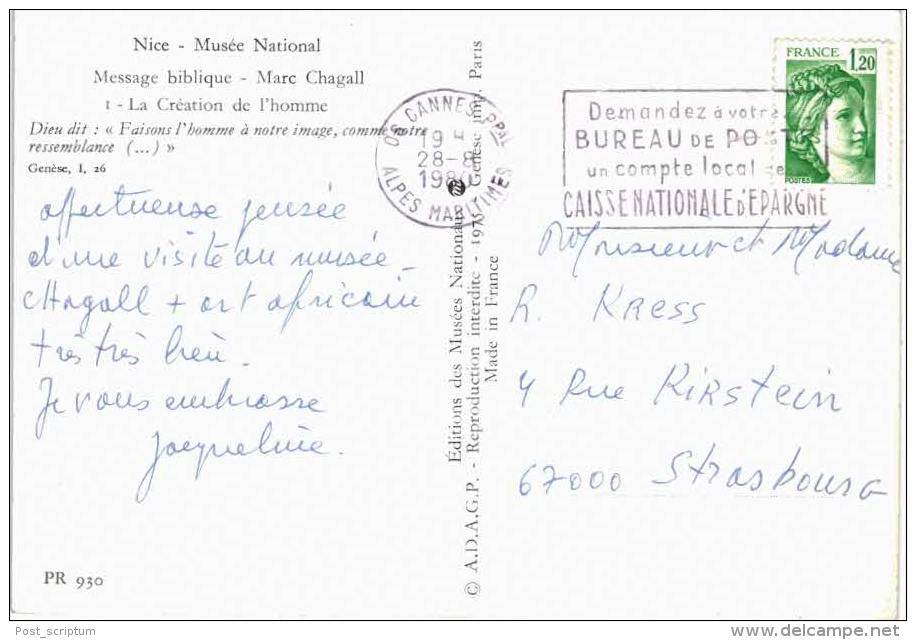 Nice - Musée National
Message biblique - Marc Chagall
1 - La Création de l'homme
Dieu dit : « Faisons l'homme à notre image, comme notre
ressemblance (...) »
Genèse, I, 26
affectueuse pensée
d'une visite au musée
Chagall + art africain
très très bien.
Je vous embrasse
Jacqueline.
PR 930
Éditions des Musées Nationaux Genèse Imp. Paris
© A.D.A.G.P. - Reproduction interdite - 1975
Made in France
06 CANNES PPAL
19 H
28-8
1980
ALPES MARITIMES
Demandez à votre
BUREAU DE POSTE
un compte local de
CAISSE NATIONALE D'EPARGNE
FRANCE 1,20
POSTES
Monsieur et Madame
R. KRESS
4 Rue KIRSTEIN
67000 Strasbourg
Post_scriptum
delcampe.net